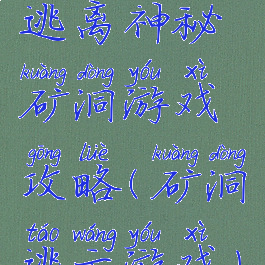 逃离神秘
kuàng dòng yóu xì
矿洞游戏
gōng lüè kuàng dòng
攻略(矿洞
táo wáng yóu xì
逃亡游戏)